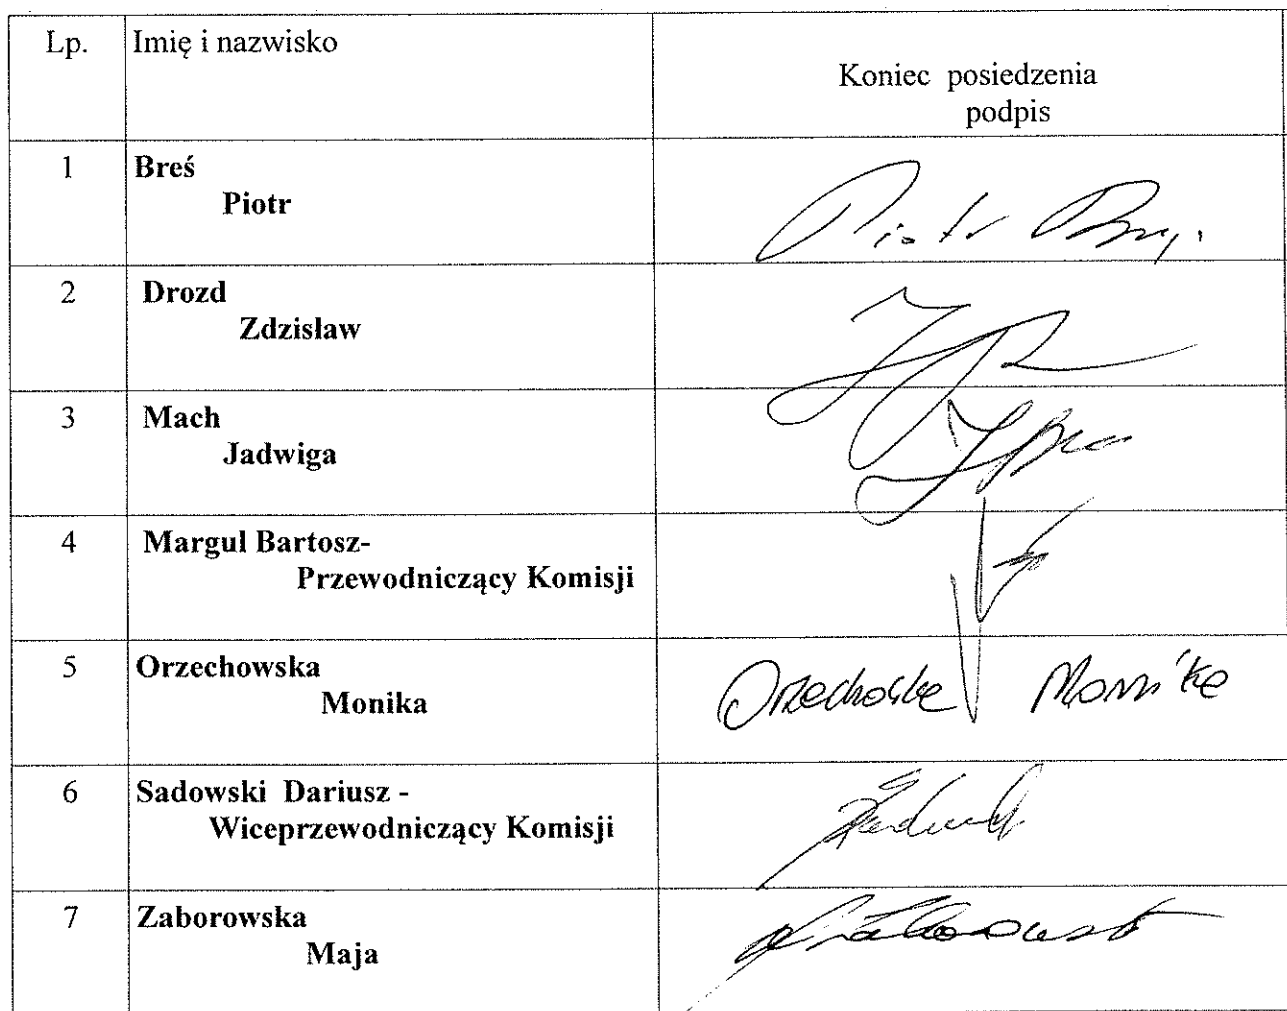 Lp. Imię i nazwisko
Koniec posiedzenia
podpis
1 Breś
Piotr
Piotr
2 Drozd
Zdzisław
3 Mach
Jadwiga
4 Margul Bartosz-
Przewodniczący Komisji
5 Orzechowska
Monika
Orzechowska Monika
6 Sadowski Dariusz -
Wiceprzewodniczący Komisji
7 Zaborowska
Maja